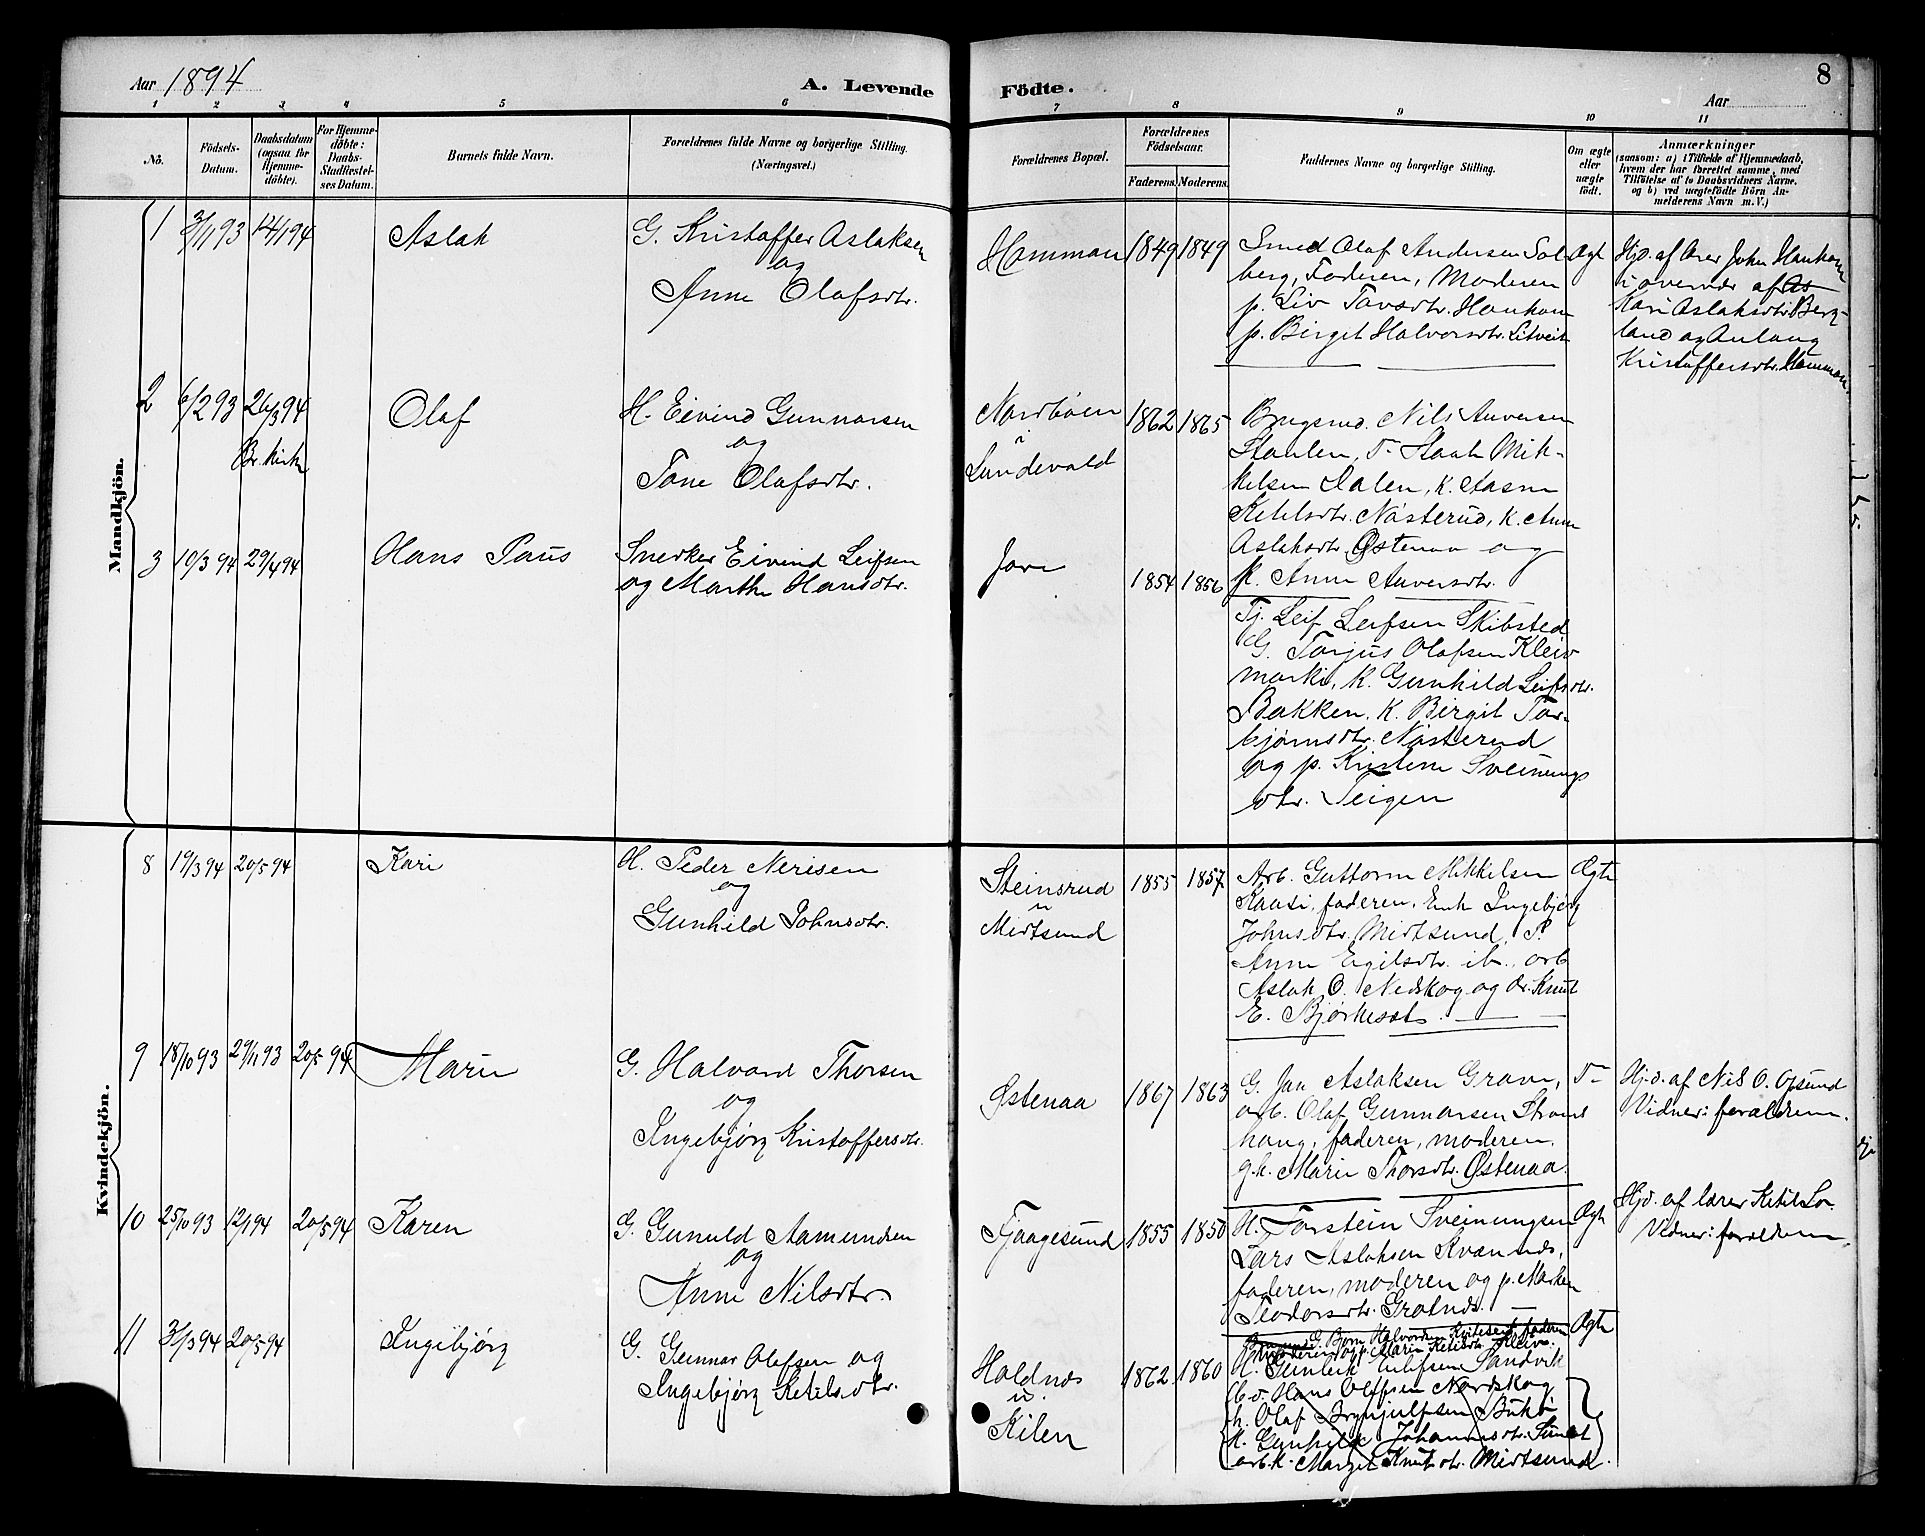 Aar 1894
A. Levende
Födte.
8
Aar
1 2 3 4 5 6 7 8 9 10 11
No.
Födsels-
Datum.
Daabsdatum
(ogsaa for
Hjemme-
döbte).
For Hjemme-
döbte:
Daabs-
Stadfæstel-
ses Datum.
Barnets fulde Navn.
Forældrenes fulde Navne og borgerlige Stilling.
(Næringsvei.)
Forældrenes Bopæl.
Forældrenes
Födselsaar.
Faderens. Moderens.
Faddernes Navne og borgerlige Stilling.
Om ægte
eller
uægte
födt.
Anmærkninger
(saasom: a) i Tilfælde af Hjemmedaab,
hvem der har forrettet samme, med
Tilföielse af to Daabsvidners Navne.
og b) ved uægtefödte Börn An-
melderens Navn m. V.)
Mandkjön.
1 3/11 93 14/1 94 Aslak
G. Kristoffer Aslaksen
og
Anne Olafsdtr.
Hamman 1849 1849
Smed Olaf Andersen Sol-
berg, Faderen, Moderen
p. Liv Tovsdtr. Haukom
p. Birgit Halvorsdtr. Litveit
Ægt
Hjd. af lærer John Haukom
i overvær af As
Kari Aslaksdtr. Berg-
land og Anlaug
Kristoffersdtr. Hamman.
2 6/2 93 26/3 94 Olaf
Br. kirke
H. Eivind Gunnarsen
og
Tone Olafsdtr.
Nordbøen
u
Lundevald
1862 1865
Brugsmd. Nils Anversen
Staulen, T- Staak Mik-
kelsen Dalen, K. Aasne
Ketilsdtr. Nästerud, K. Anne
Aslaksdtr. Østenaa og
p. Anne Anversdtr.
3 10/3 94 29/4 94 Hans Paus
Snerker Eivind Leifsen
og Marthe Hansdtr.
Jore
1854 1856
Tj. Leif Leifsen Skibsted
G. Torjus Olafsen Kleiv
marki, K. Gunhild Leifsdtr.
Bakken, K. Birgit Tor-
bjørnsdtr. Nästerud
og p. Kristine Sveinungs
dtr. Teigen
Kvindekjön.
8 19/3 94 20/5 94 Kari
H. Peder Nerisen
og
Gunhild Johnsdtr.
Steinsrud
u
Midtsund
1855 1857
Arb. Guttorm Mikkelsen
Kaasi, faderen, Enk Ingebjørg
Johnsdtr. Midtsund, P.
Anne Egilsdtr. ib., arb
Aslak O. Nedskog og dr. Knut
E. Bjørkesæt.
Ægte
9 18/10 93 29/11 93 20/5 94 Marie
G. Halvard Thorsen
og
Ingebjørg Kristoffersdtr.
Østenaa 1867 1863
G. Jan Aslaksen Grave,
arb. Olaf Gunnarsen Strand
haug, faderen, moderen.
g.k. Marie Thorsdtr. Østenaa.
T-
Hj.d. af Nils O. Opsund
Vidner: forældrene.
10 25/10 93 12/1 94 20/5 94 Karen
G. Gunuld Aamundsen
og
Anne Nilsdtr.
Fjaagesund 1855 1850
H. Torstein Sveinungsen
Lars Aslaksen Kvænnds,
faderen, moderen og p. Marken
Teodorsdtr. Grotnds.
Ægte
Hjd. af lærer Ketil Lo-
Vidner: forældrene.
11 31/3 94 20/5 94 Ingebjørg
G. Gunnar Olafsen og
Ingebjørg Ketilsdtr.
Holdnes
u
Kilen
1862 1860
G. Bjørn Halvorsen Kviteseid, faderen
moderen og p. Marie Ketilsdtr. Kleiva.
H. Gunleik Eilifsen Sandvik
Hans Olafsen Nordskog
h. Olaf Brynjulfsen Buhø
K. Gunhild Johannesdtr. Sundet
arb. k. Margit Knutsdtr. Midtsund.
Ægte